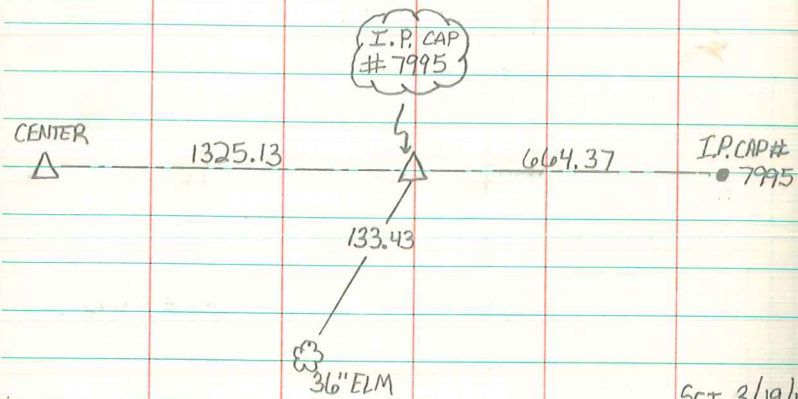 I.P. CAP
# 7995
CENTER
1325.13
664.37
I.P. CAP#
7995
133.43
36" ELM